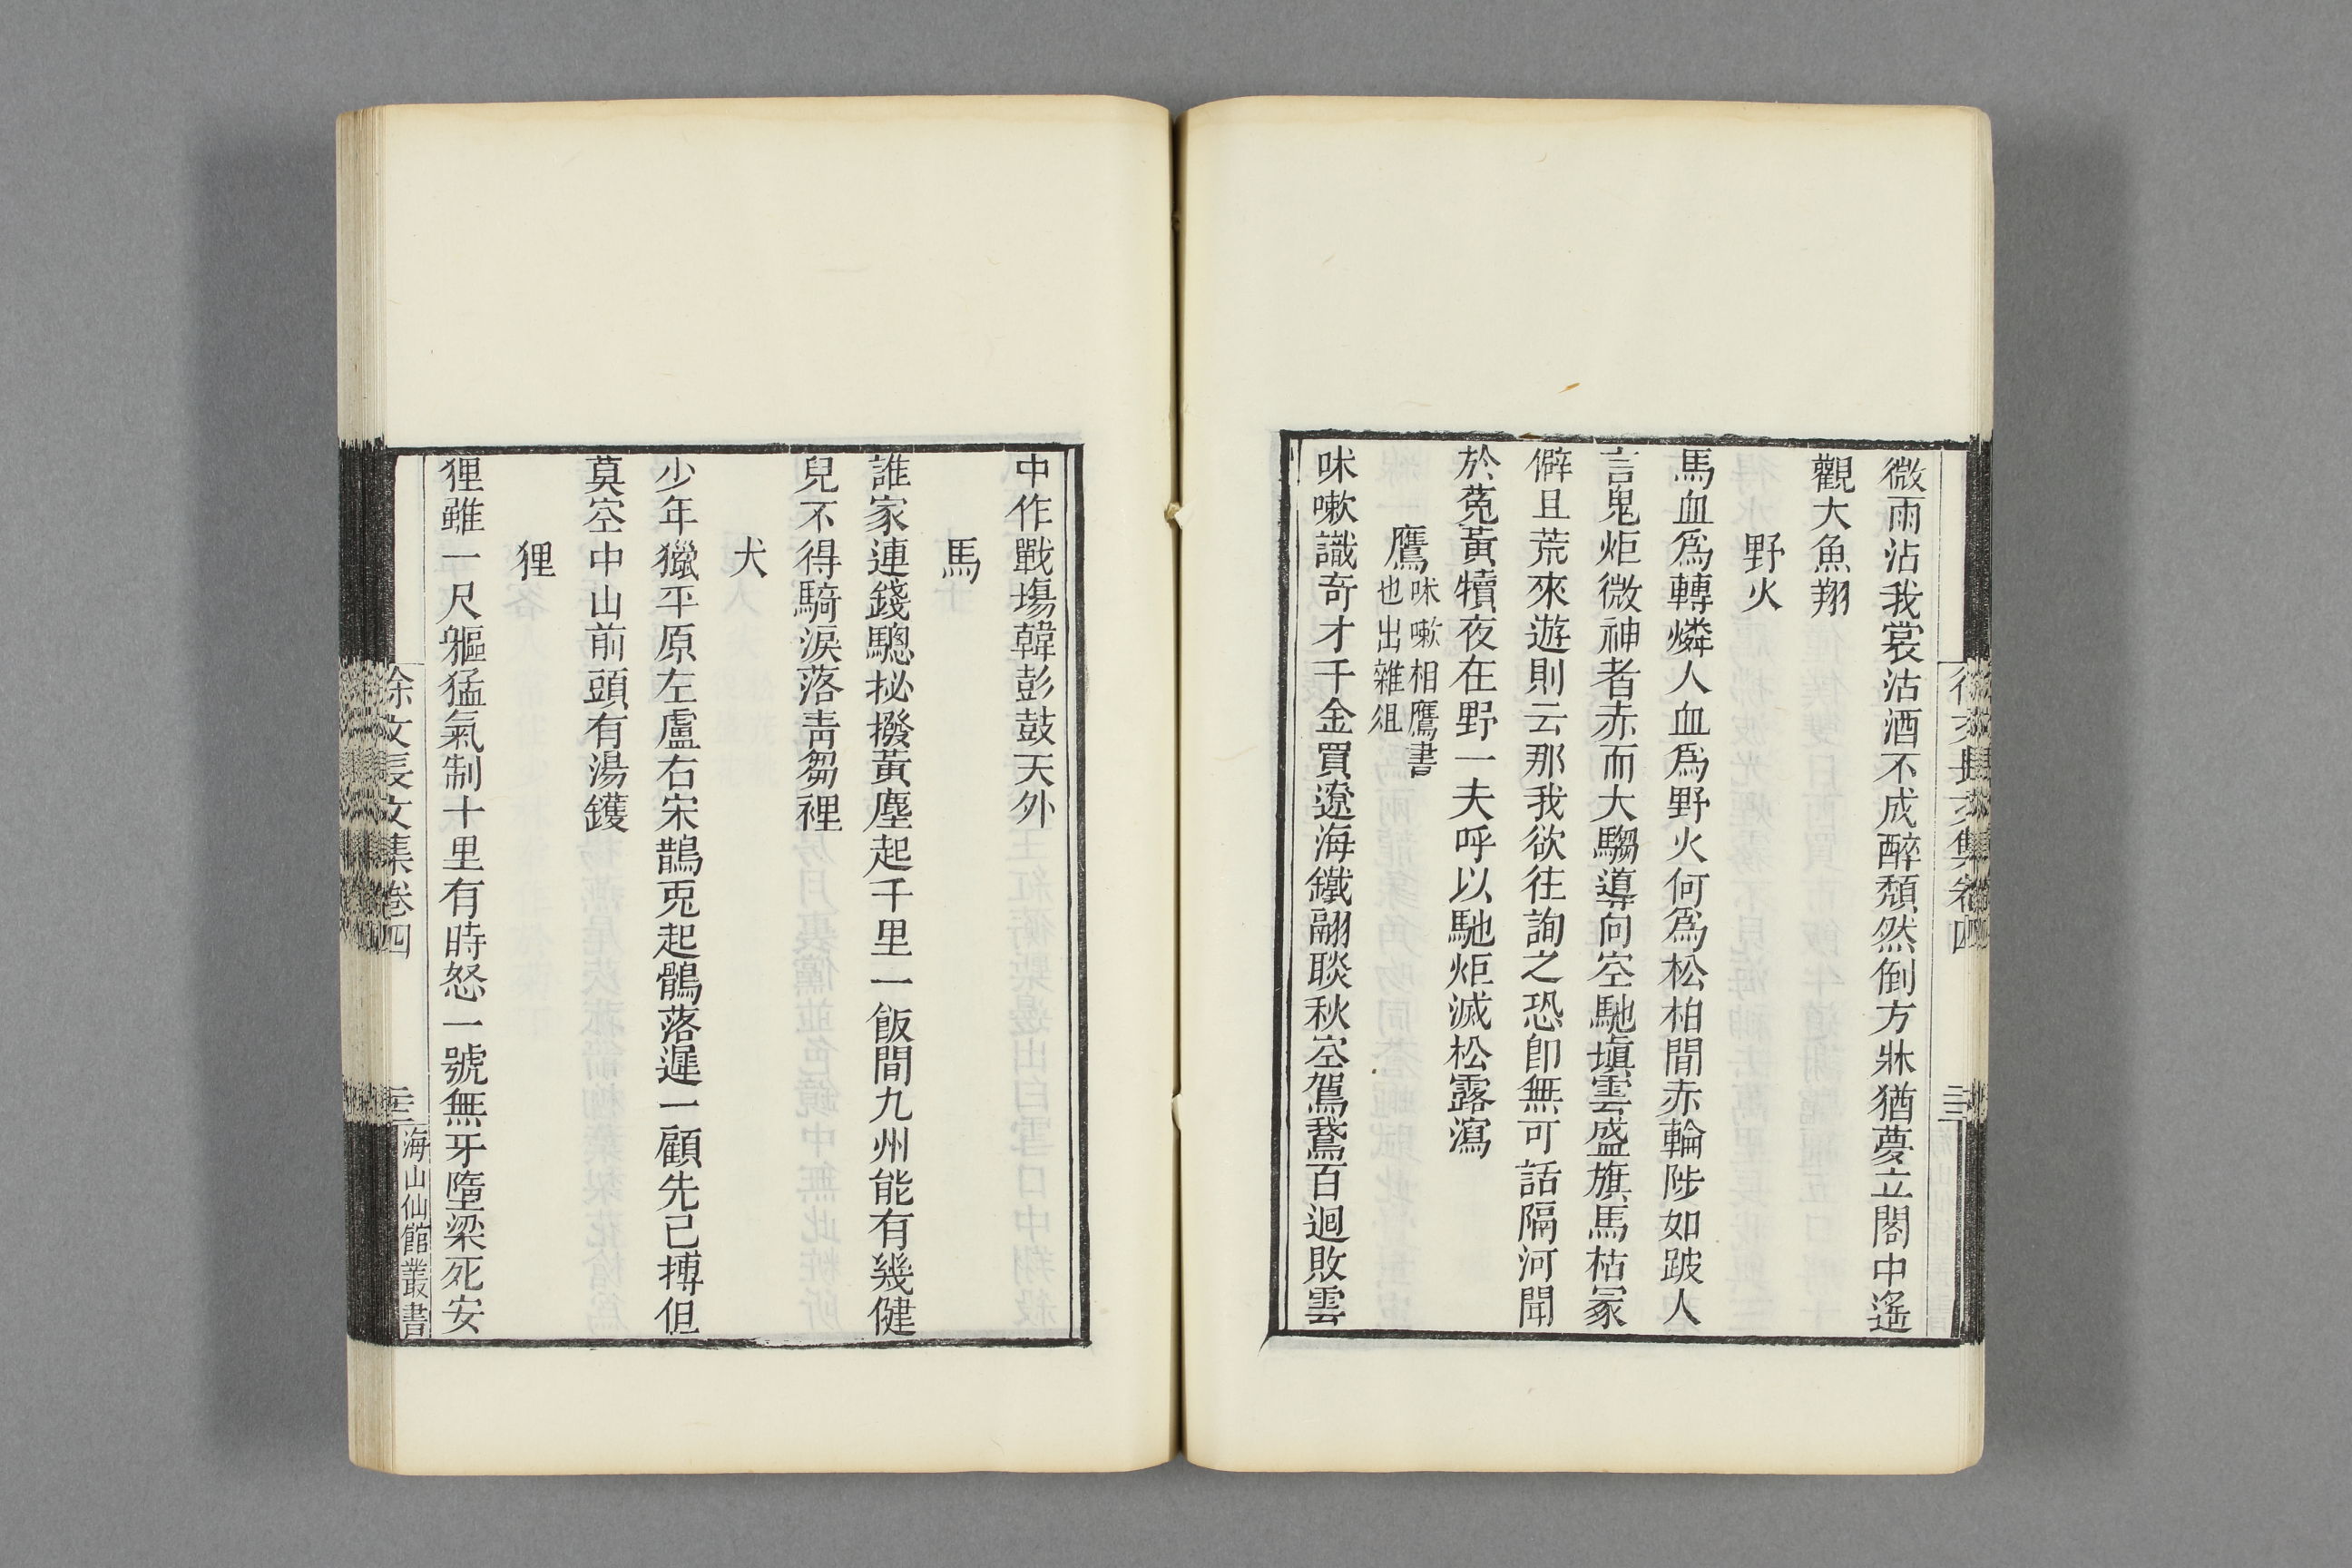 微雨沾我裳沽酒不成醉頹然倒方牀猶夢立閣中遙
觀大魚翔
野火
馬血爲轉燐人血爲野火何爲松柏間赤輪陟如跛人
言鬼炬微神者赤而大騶導向空馳塡雲盛旗馬枯冡
僻且荒來遊則云那我欲往詢之恐卽無可話隔河聞
於菟黃犢夜在野一夫呼以馳炬滅松露瀉
鷹
呋嗽相鷹書
也出雜俎
呋嗽識奇才千金買遼海鐵翮睒秋空駕鵞百迴敗雲
中作戰塲韓彭鼓天外
馬
誰家連錢驄柲撥黃塵起千里一飯間九州能有幾健
兒不得騎淚落靑芻裡
犬
少年獵平原左盧右宋鵲兎起鶻落遲一顧先已搏但
莫空中山前頭有湯鑊
狸
狸雖一尺軀猛氣制十里有時怒一號無牙墮梁死安
徐文長文集卷四
三
海山仙館叢書